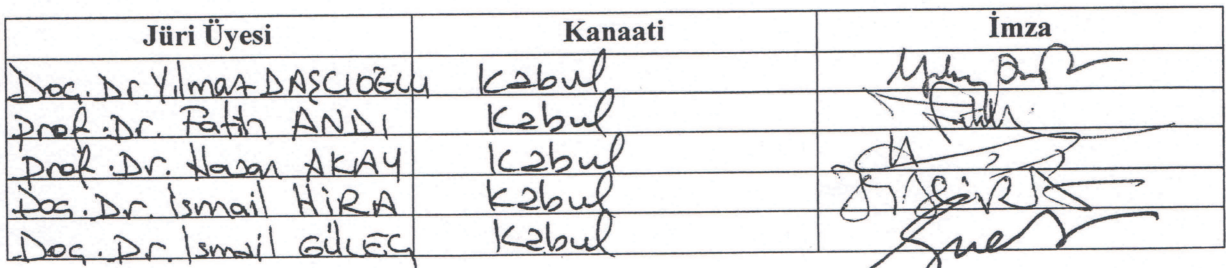 Jüri Üyesi Kanaati İmza
Doç. Dr. Yılmaz DAŞÇIOĞLU Kabul
Prof. Dr. Fatih ANDI Kabul
Prof. Dr. Hasan AKAY Kabul
Doç. Dr. İsmail HİRA Kabul
Doç. Dr. İsmail GÜLEÇ Kabul